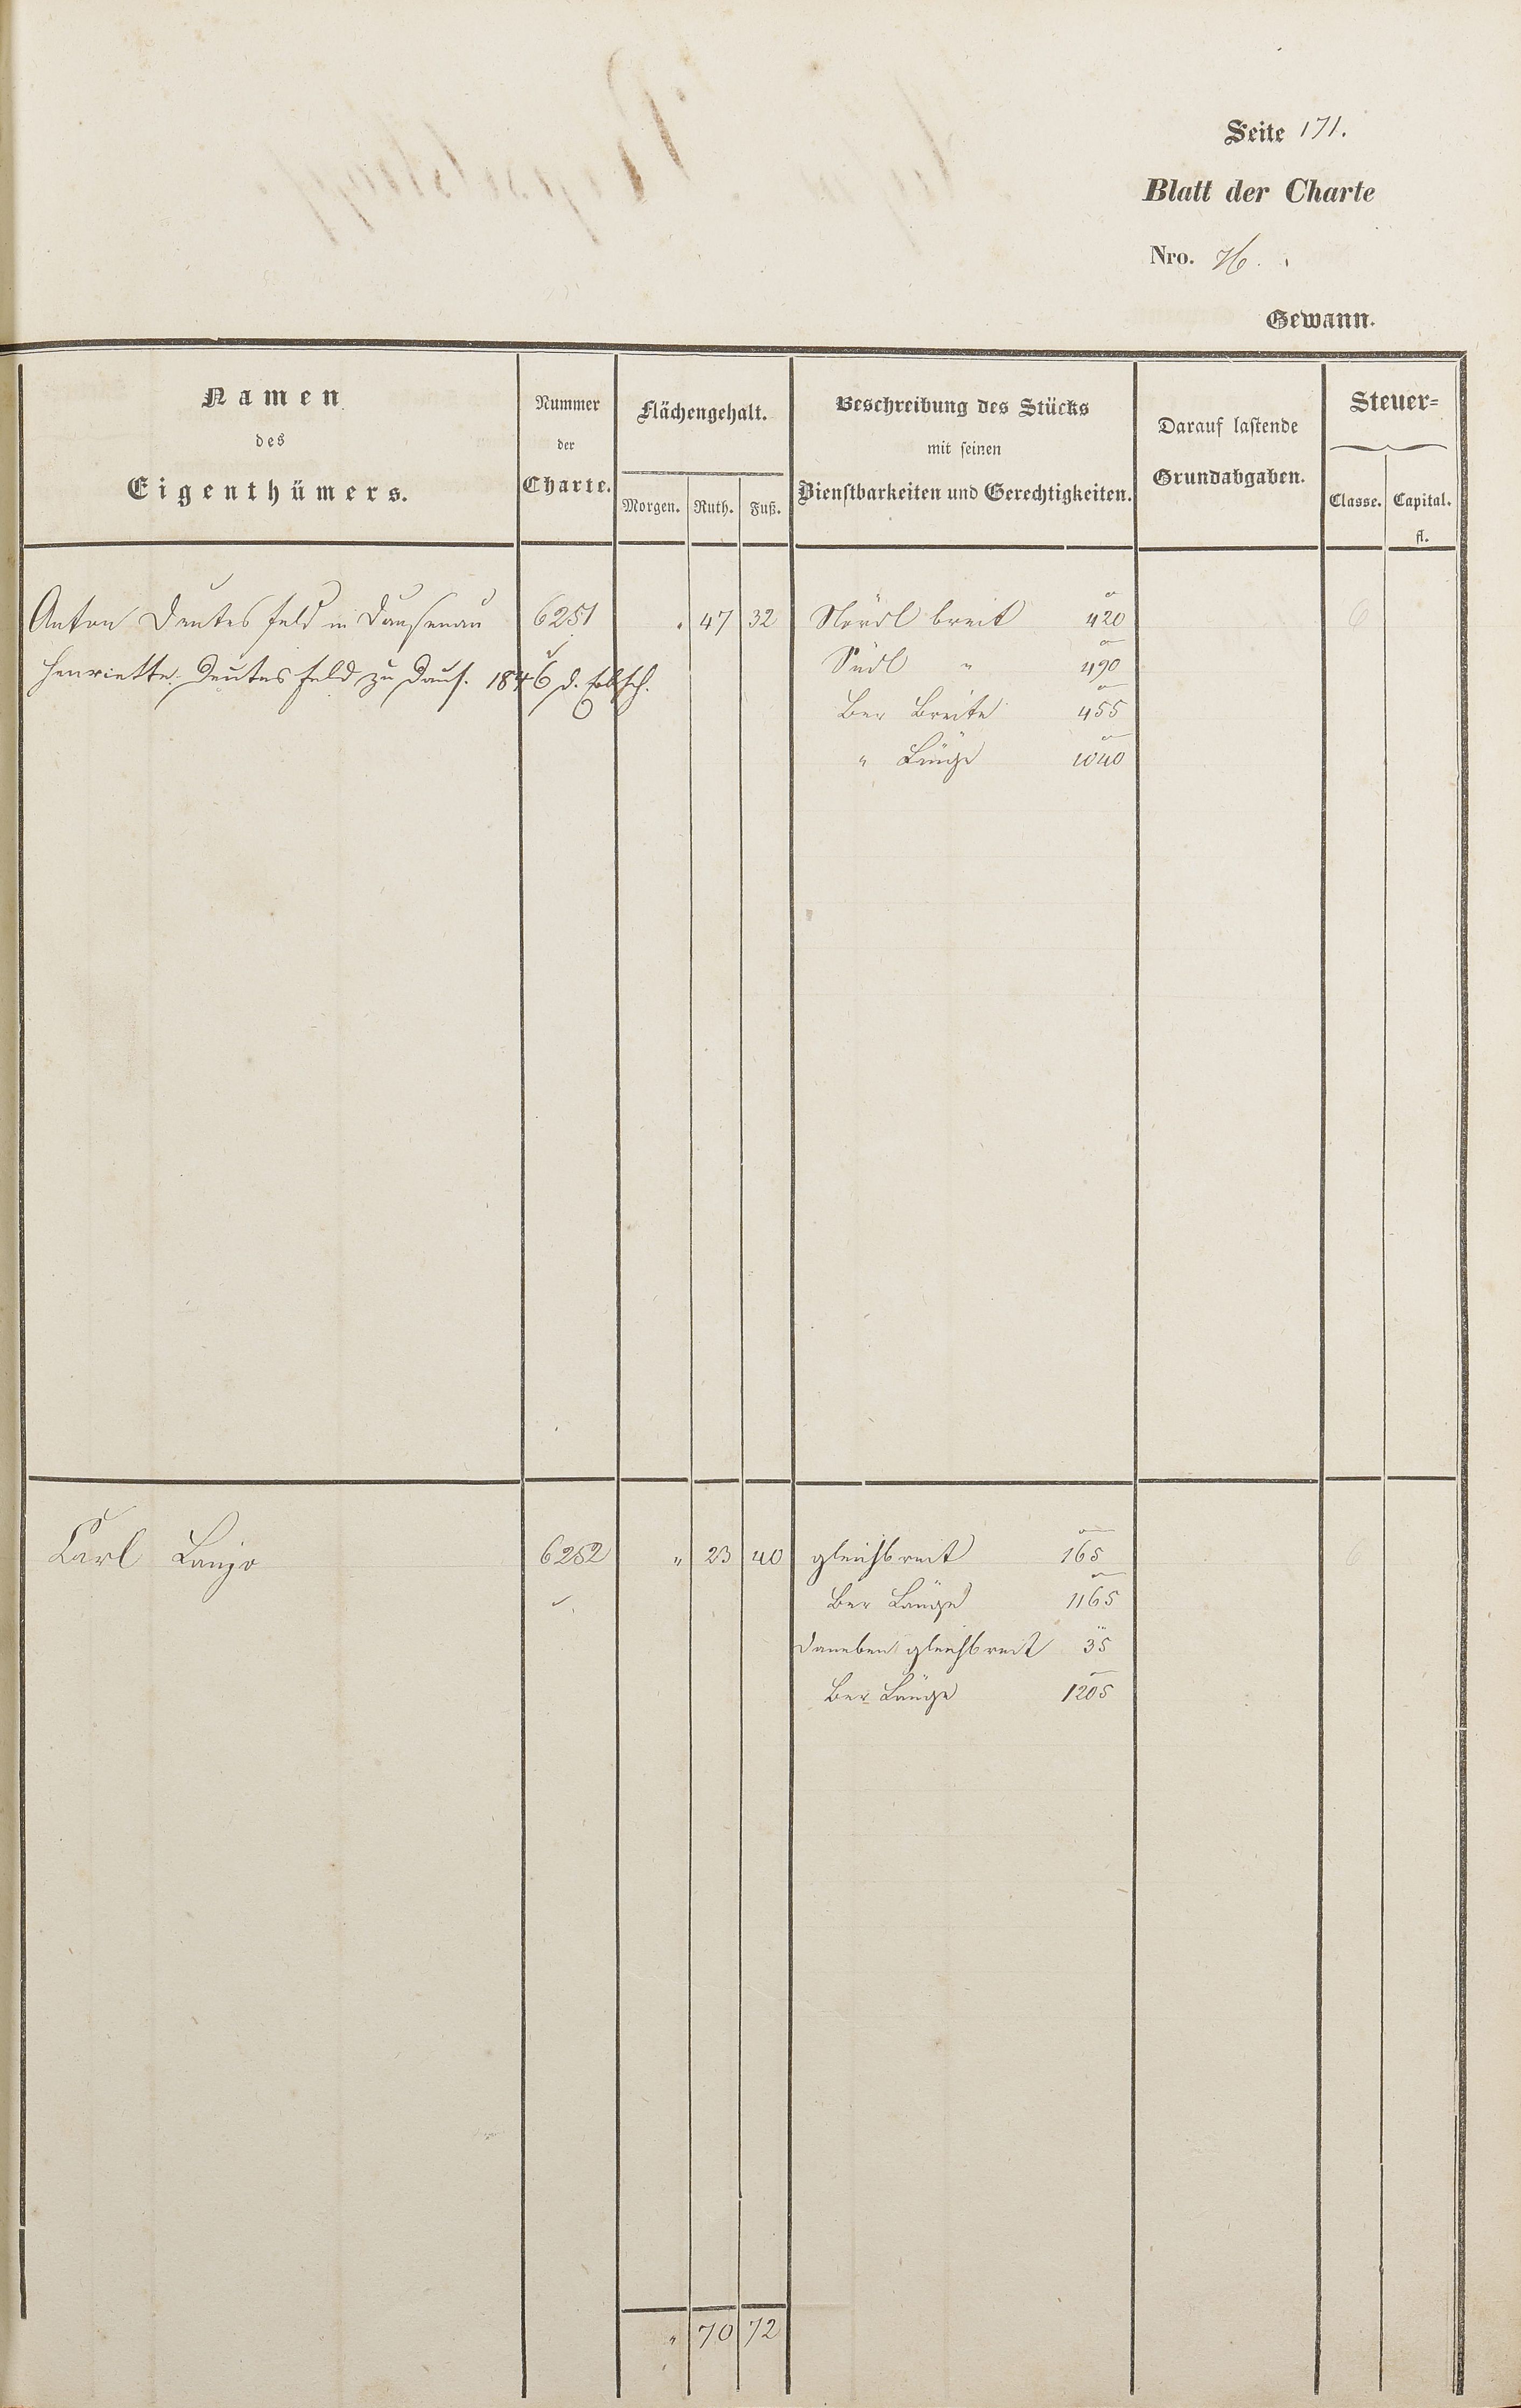 Seite 171.
Blatt der Charte
Nro. 76.
Gewann.
Namen
des
Eigenthümers.
Nummer
der
Charte.
Flächengehalt.
Morgen. Ruth. Fuß.
Beschreibung des Stücks
mit seinen
Dienstbarkeiten und Gerechtigkeiten.
Darauf lastende
Grundabgaben.
Steuer=
Classe. Capital.
fl.
Anton Deutesfeld in Dausenau 6251 . 47 32 Nördl breit 420 6
Henriette Deutesfeld zu Daus. 1846 d. Erbsch. Südl " 490
Ber Breite 455
" Länge 1040
Carl Lanjo 6252 " 23 40 gleichbreit 165 6
Ber Länge 1165
Daneben gleichbreit 35
Ber Länge 1205
" 70 72